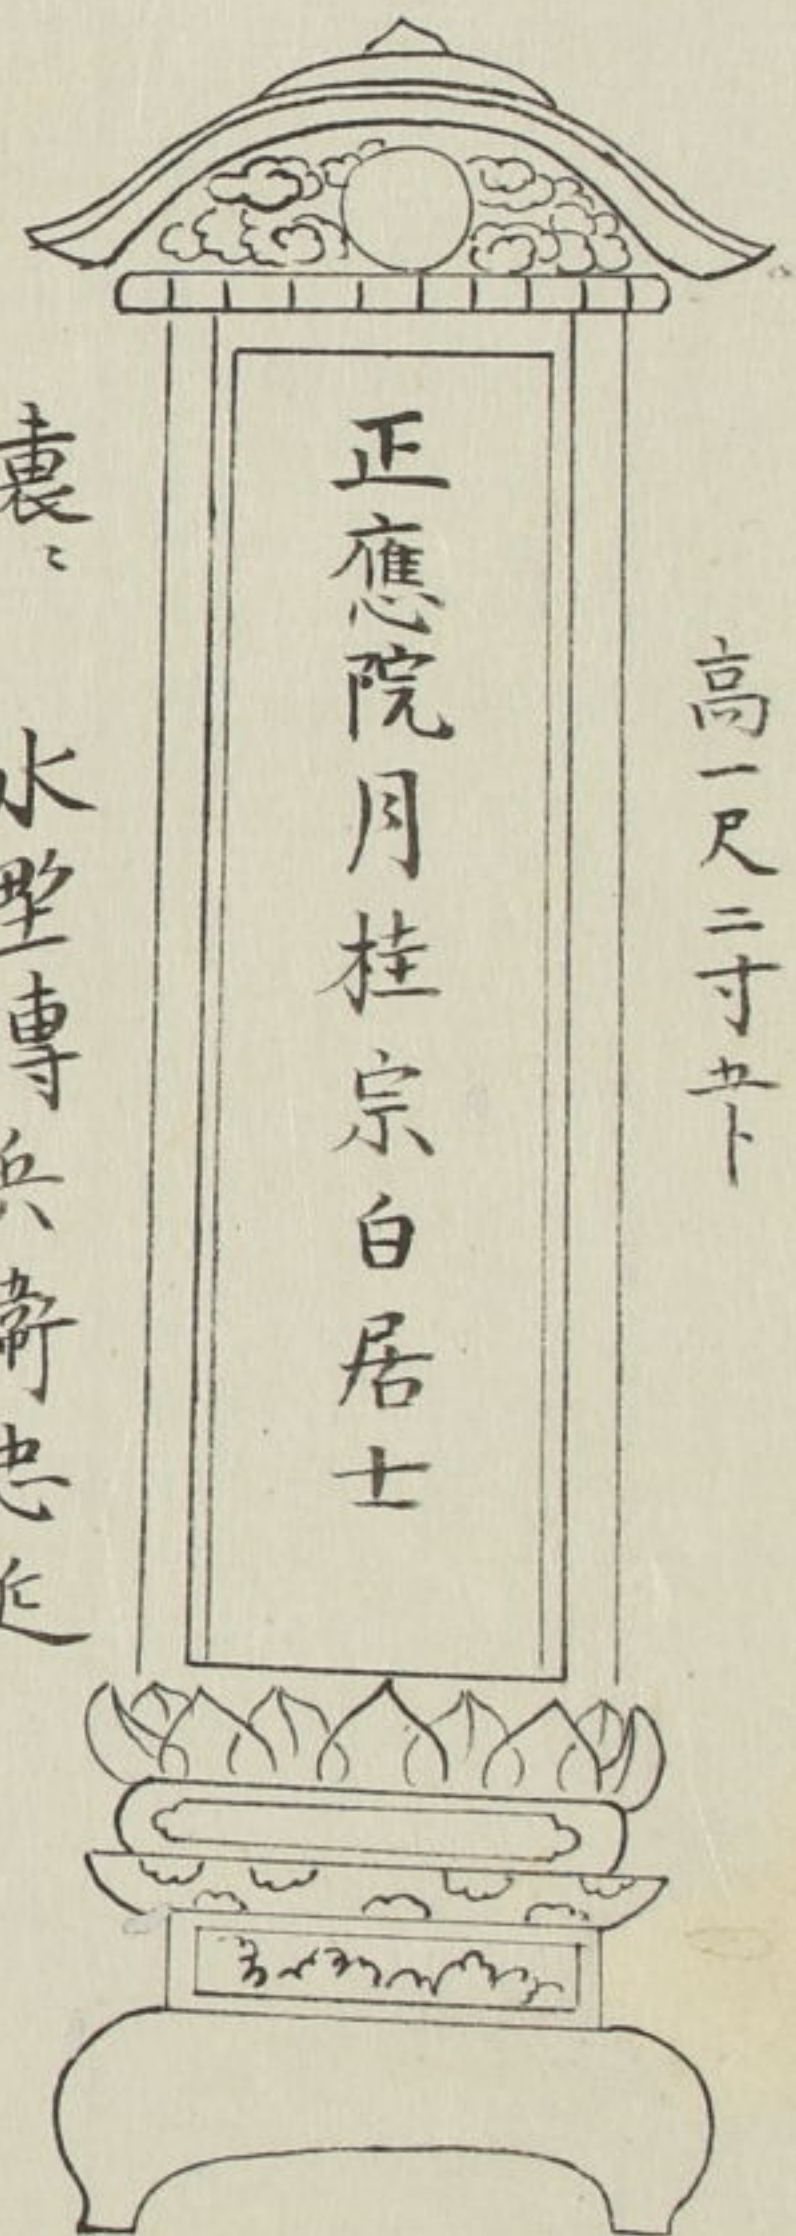 高一尺二寸五卜
正應院月桂宗白居士
裏ニ 水埜專兵衞忠近